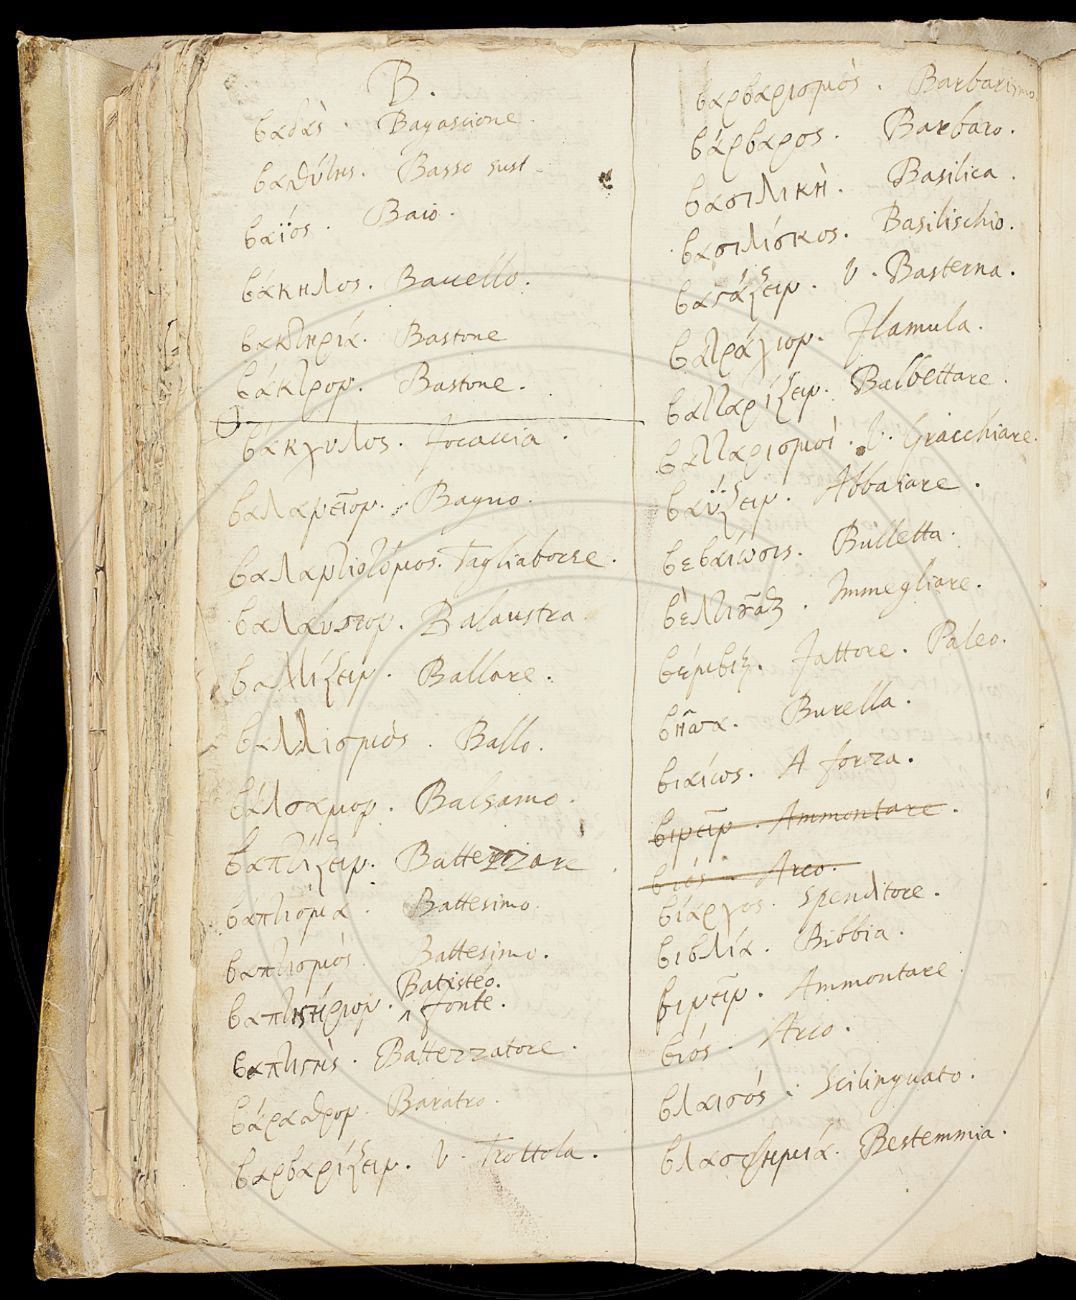 B.
βαδὰς. Bagascione.
βαθύτης. Basso sust.
βαϊός. Baio.
βάκηλος. Bacello.
βακτηριά. Bastone
βάκτρον. Bastone.
βάκχυλος. focaccia.
βαλανεῖον. Bagno.
βαλαντιοτόμος. Tagliaborse.
βαλαύστον. Balaustra
βαλλίζειν. Ballare.
βαλλισμὸς. Ballo.
βάλσαμον. Balsamo.
βαπτίζειν. Battezzare.
βάπτισμα. Battesimo.
βαπτισμός. Battesimo.
Batisteo.
βαπτιστήριον. ^ fonte.
βαπτιστὴς. Battezzatore.
βάραθρον. Baratro.
βαρβαρίζειν. V. Trottola.
βαρβαρισμὸς. Barbarismo
βάρβαρος. Barbaro.
βασιλικὴ. Basilica.
βασιλίσκος. Basilischio.
βαστάζειν. V. Basterna.
βατράχιον. flamula.
βατταρίζειν. Balbettare.
βατταρισμοί. V. Gracchiare.
βαΰζειν. Abbaiare.
βεβαίωσις. Bulletta.
Immegliare.
βέμβιξ. fattore. Paleo.
Burella.
βιαίως. A forza.
βινεῖν. Ammontare.
βιός. Arco.
βιάρχος. Spenditore.
βιβλία. Bibbia.
βινεῖν. Ammontare
βιός. Arco.
βλαισός. Scilinguato.
βλασφημιά. Bestemmia.